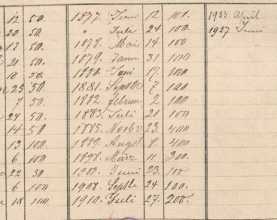 12 50 1877. Juni 12 100. 1923 April
20 50 " Juli 24 100 1927 Juni
17 50 1878. Mai 14 100
21 50 1879. Janu 31 100
10 50 1880. Juni 17 100
22 50 1881. Septbr 7 100
7 50 1882. Februar 2 100
24 50 1883. Juli 21 100
14 50 1885. Novbr 23. 400
13 100 1889. August 8 400
6 100 1898. März 11 300.
22 30 Juni 23. 100
6 100 1908. Septbr 24 100.
18 100 1910. Juli 27. 200.